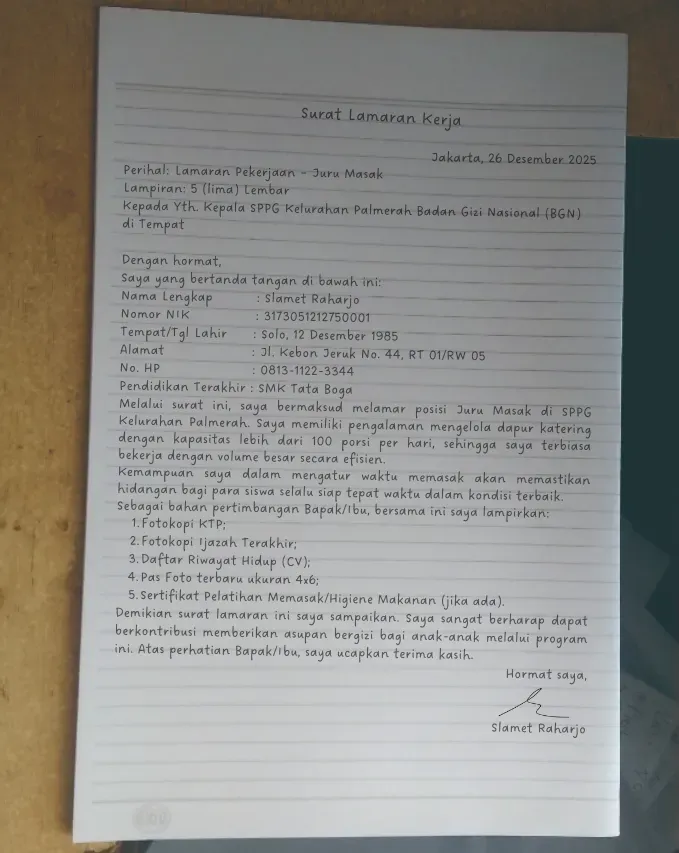 Surat Lamaran Kerja
Jakarta, 26 Desember 2025
Perihal: Lamaran Pekerjaan - Juru Masak
Lampiran: 5 (lima) Lembar
Kepada Yth. Kepala SPPG Kelurahan Palmerah Badan Gizi Nasional (BGN)
di Tempat
Dengan hormat,
Saya yang bertanda tangan di bawah ini:
Nama Lengkap : Slamet Raharjo
Nomor NIK : 3173051212750001
Tempat/Tgl Lahir : Solo, 12 Desember 1985
Alamat : Jl. Kebon Jeruk No. 44, RT 01/RW 05
No. HP : 0813-1122-3344
Pendidikan Terakhir : SMK Tata Boga
Melalui surat ini, saya bermaksud melamar posisi Juru Masak di SPPG
Kelurahan Palmerah. Saya memiliki pengalaman mengelola dapur katering
dengan kapasitas lebih dari 100 porsi per hari, sehingga saya terbiasa
bekerja dengan volume besar secara efisien.
Kemampuan saya dalam mengatur waktu memasak akan memastikan
hidangan bagi para siswa selalu siap tepat waktu dalam kondisi terbaik.
Sebagai bahan pertimbangan Bapak/Ibu, bersama ini saya lampirkan:
1. Fotokopi KTP;
2. Fotokopi Ijazah Terakhir;
3. Daftar Riwayat Hidup (CV);
4. Pas Foto terbaru ukuran 4x6;
5. Sertifikat Pelatihan Memasak/Higiene Makanan (jika ada).
Demikian surat lamaran ini saya sampaikan. Saya sangat berharap dapat
berkontribusi memberikan asupan bergizi bagi anak-anak melalui program
ini. Atas perhatian Bapak/Ibu, saya ucapkan terima kasih.
Hormat saya,
Slamet Raharjo